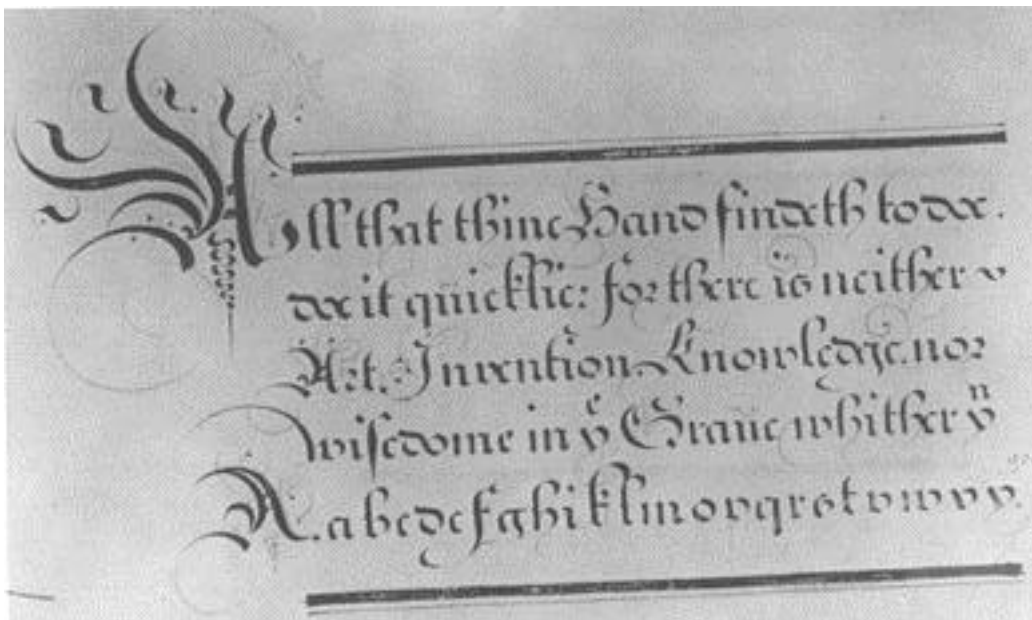 All that thine Hand findeth to doe.
doe it quicklie: for there is neither
Art. Invention. Knowledge. nor
wisedome in yᵉ Graue whither yⁿ
A. a b c d e f g h i k l m o p q r s t v w x y.